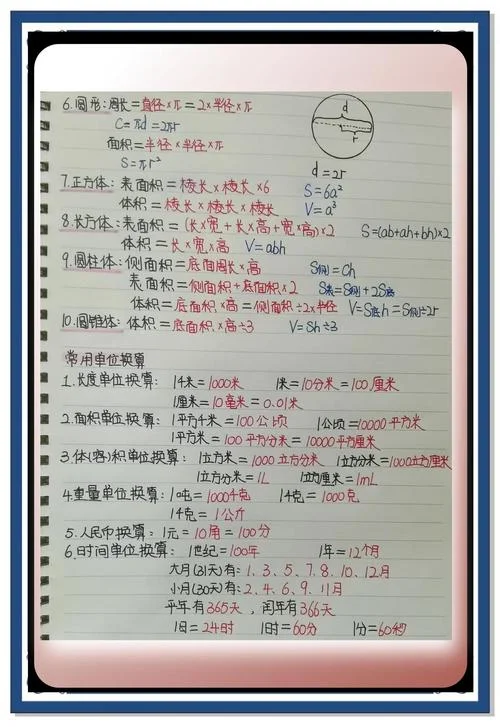 6.圆形:周长=直径×π=2×半径×π
C=πd=2πr
面积=半径×半径×π
S=πr²
d
r
d=2r
7.正方体:表面积=棱长×棱长×6 S=6a²
体积=棱长×棱长×棱长 V=a³
8.长方体:表面积=(长×宽+长×高+宽×高)×2 S=(ab+ah+bh)×2
体积=长×宽×高 V=abh
9.圆柱体:侧面积=底面周长×高 S侧=Ch
表面积=侧面积+底面积×2 S表=S侧+2S底
体积=底面积×高=侧面积÷2×半径 V=S底h=S侧÷2r
10.圆锥体:体积=底面积×高÷3 V=Sh÷3
常用单位换算
1.长度单位换算:1千米=1000米 1米=10分米=100厘米
1厘米=10毫米=0.01米
2.面积单位换算:1平方千米=100公顷 1公顷=10000平方米
1平方米=100平方分米=10000平方厘米
3.体(容)积单位换算:1立方米=1000立方分米 1立方分米=1000立方厘米
1立方分米=1L 1立方厘米=1mL
4.重量单位换算:1吨=1000千克 1千克=1000克
1千克=1公斤
5.人民币换算:1元=10角=100分
6.时间单位换算:1世纪=100年 1年=12个月
大月(31天)有:1、3、5、7、8、10、12月
小月(30天)有:2、4、6、9、11月
平年有365天,闰年有366天
1日=24时 1时=60分 1分=60秒